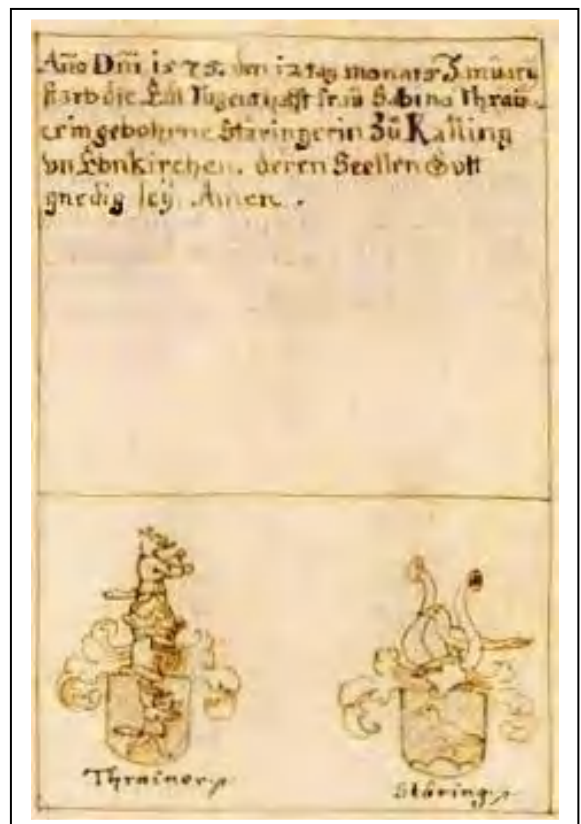 Año Dñi 1575. den 12 tag monats Januarij
starb die Edl Tugenthafft fraŭ Sabina Thraŭ
erin gebohrne Stäringerin Zŭ Kalling
vn Ebnkirchen. deren Seellen Gott
gnedig seÿ. Amen.
Thrainer
Stäring